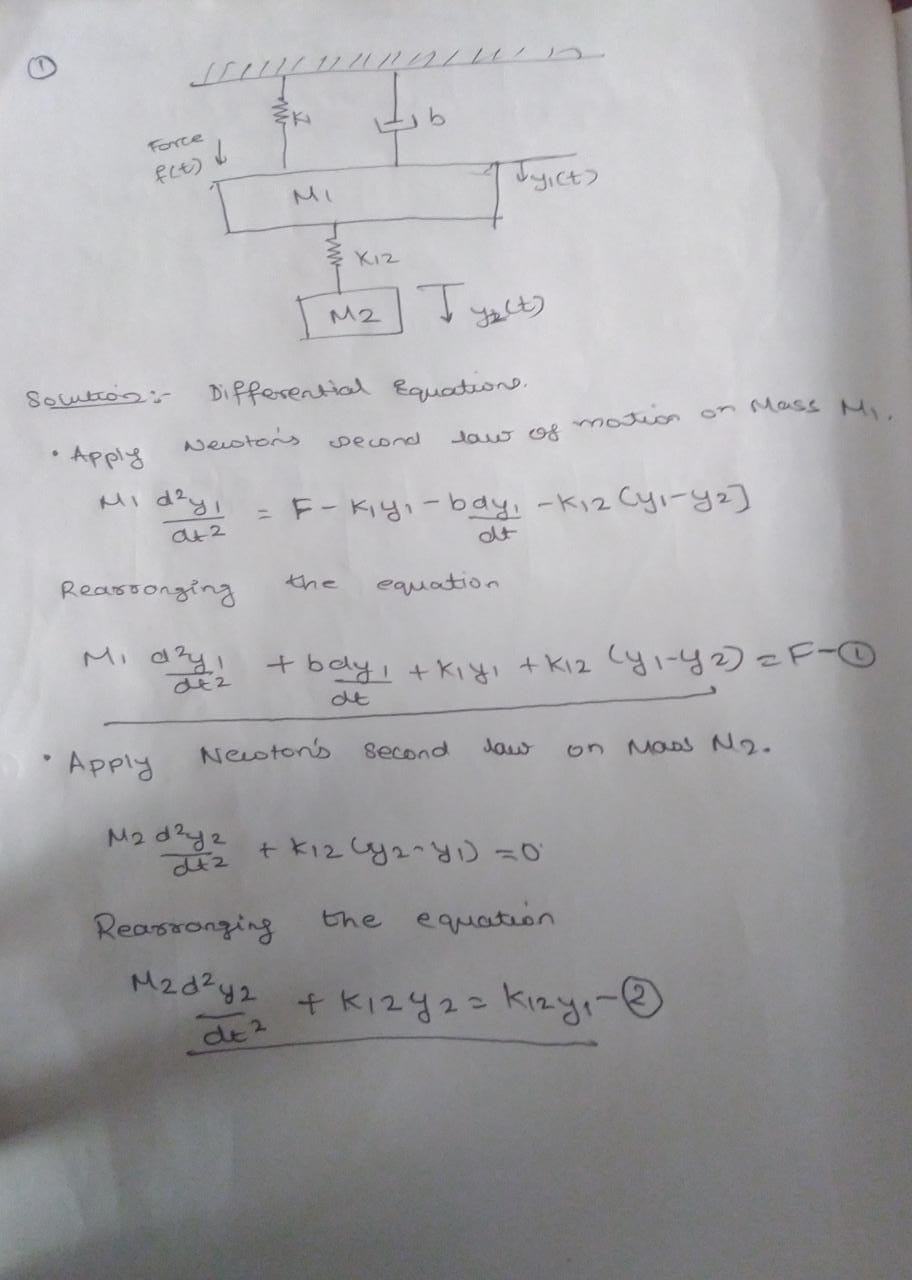 ①
K1
b
Force
f(t)
M1
y1(t)
K12
M2
y2(t)
Solution:- Differential Equations.
• Apply Newton's second law of motion on Mass M1.
M1 d²y1/dt2 = F - K1y1 - b dy1/dt - K12 (y1-y2]
Rearranging the equation
M1 d²y1/dt2 + b dy1/dt + K1y1 + K12 (y1-y2) = F - ①
• Apply Newton's Second law on Mass M2.
M2 d²y2/dt2 + K12 (y2-y1) = 0
Rearranging the equation
M2 d²y2/dt2 + K12 y2 = K12 y1 - ②